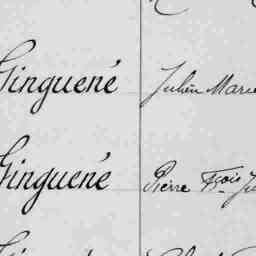 Ginguené Julien Marie
Ginguené Pierre Fçois